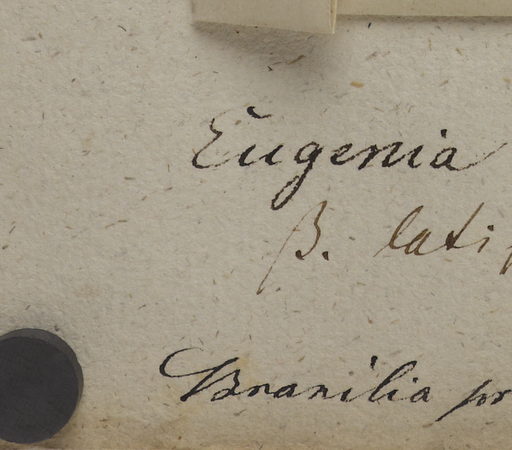 Eugenia
β. lati
Brasilia pr